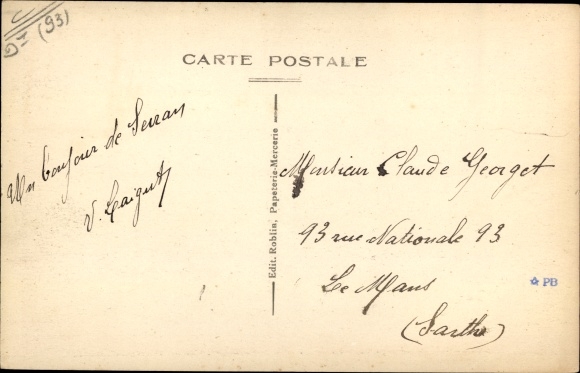 (93)
CARTE POSTALE
Un bonjour de Serran
Edit. Roblin, Papeterie-Mercerie
Monsieur Claude Georget
93 rue Nationale 93
Le Mans
(Sarthe)
PB